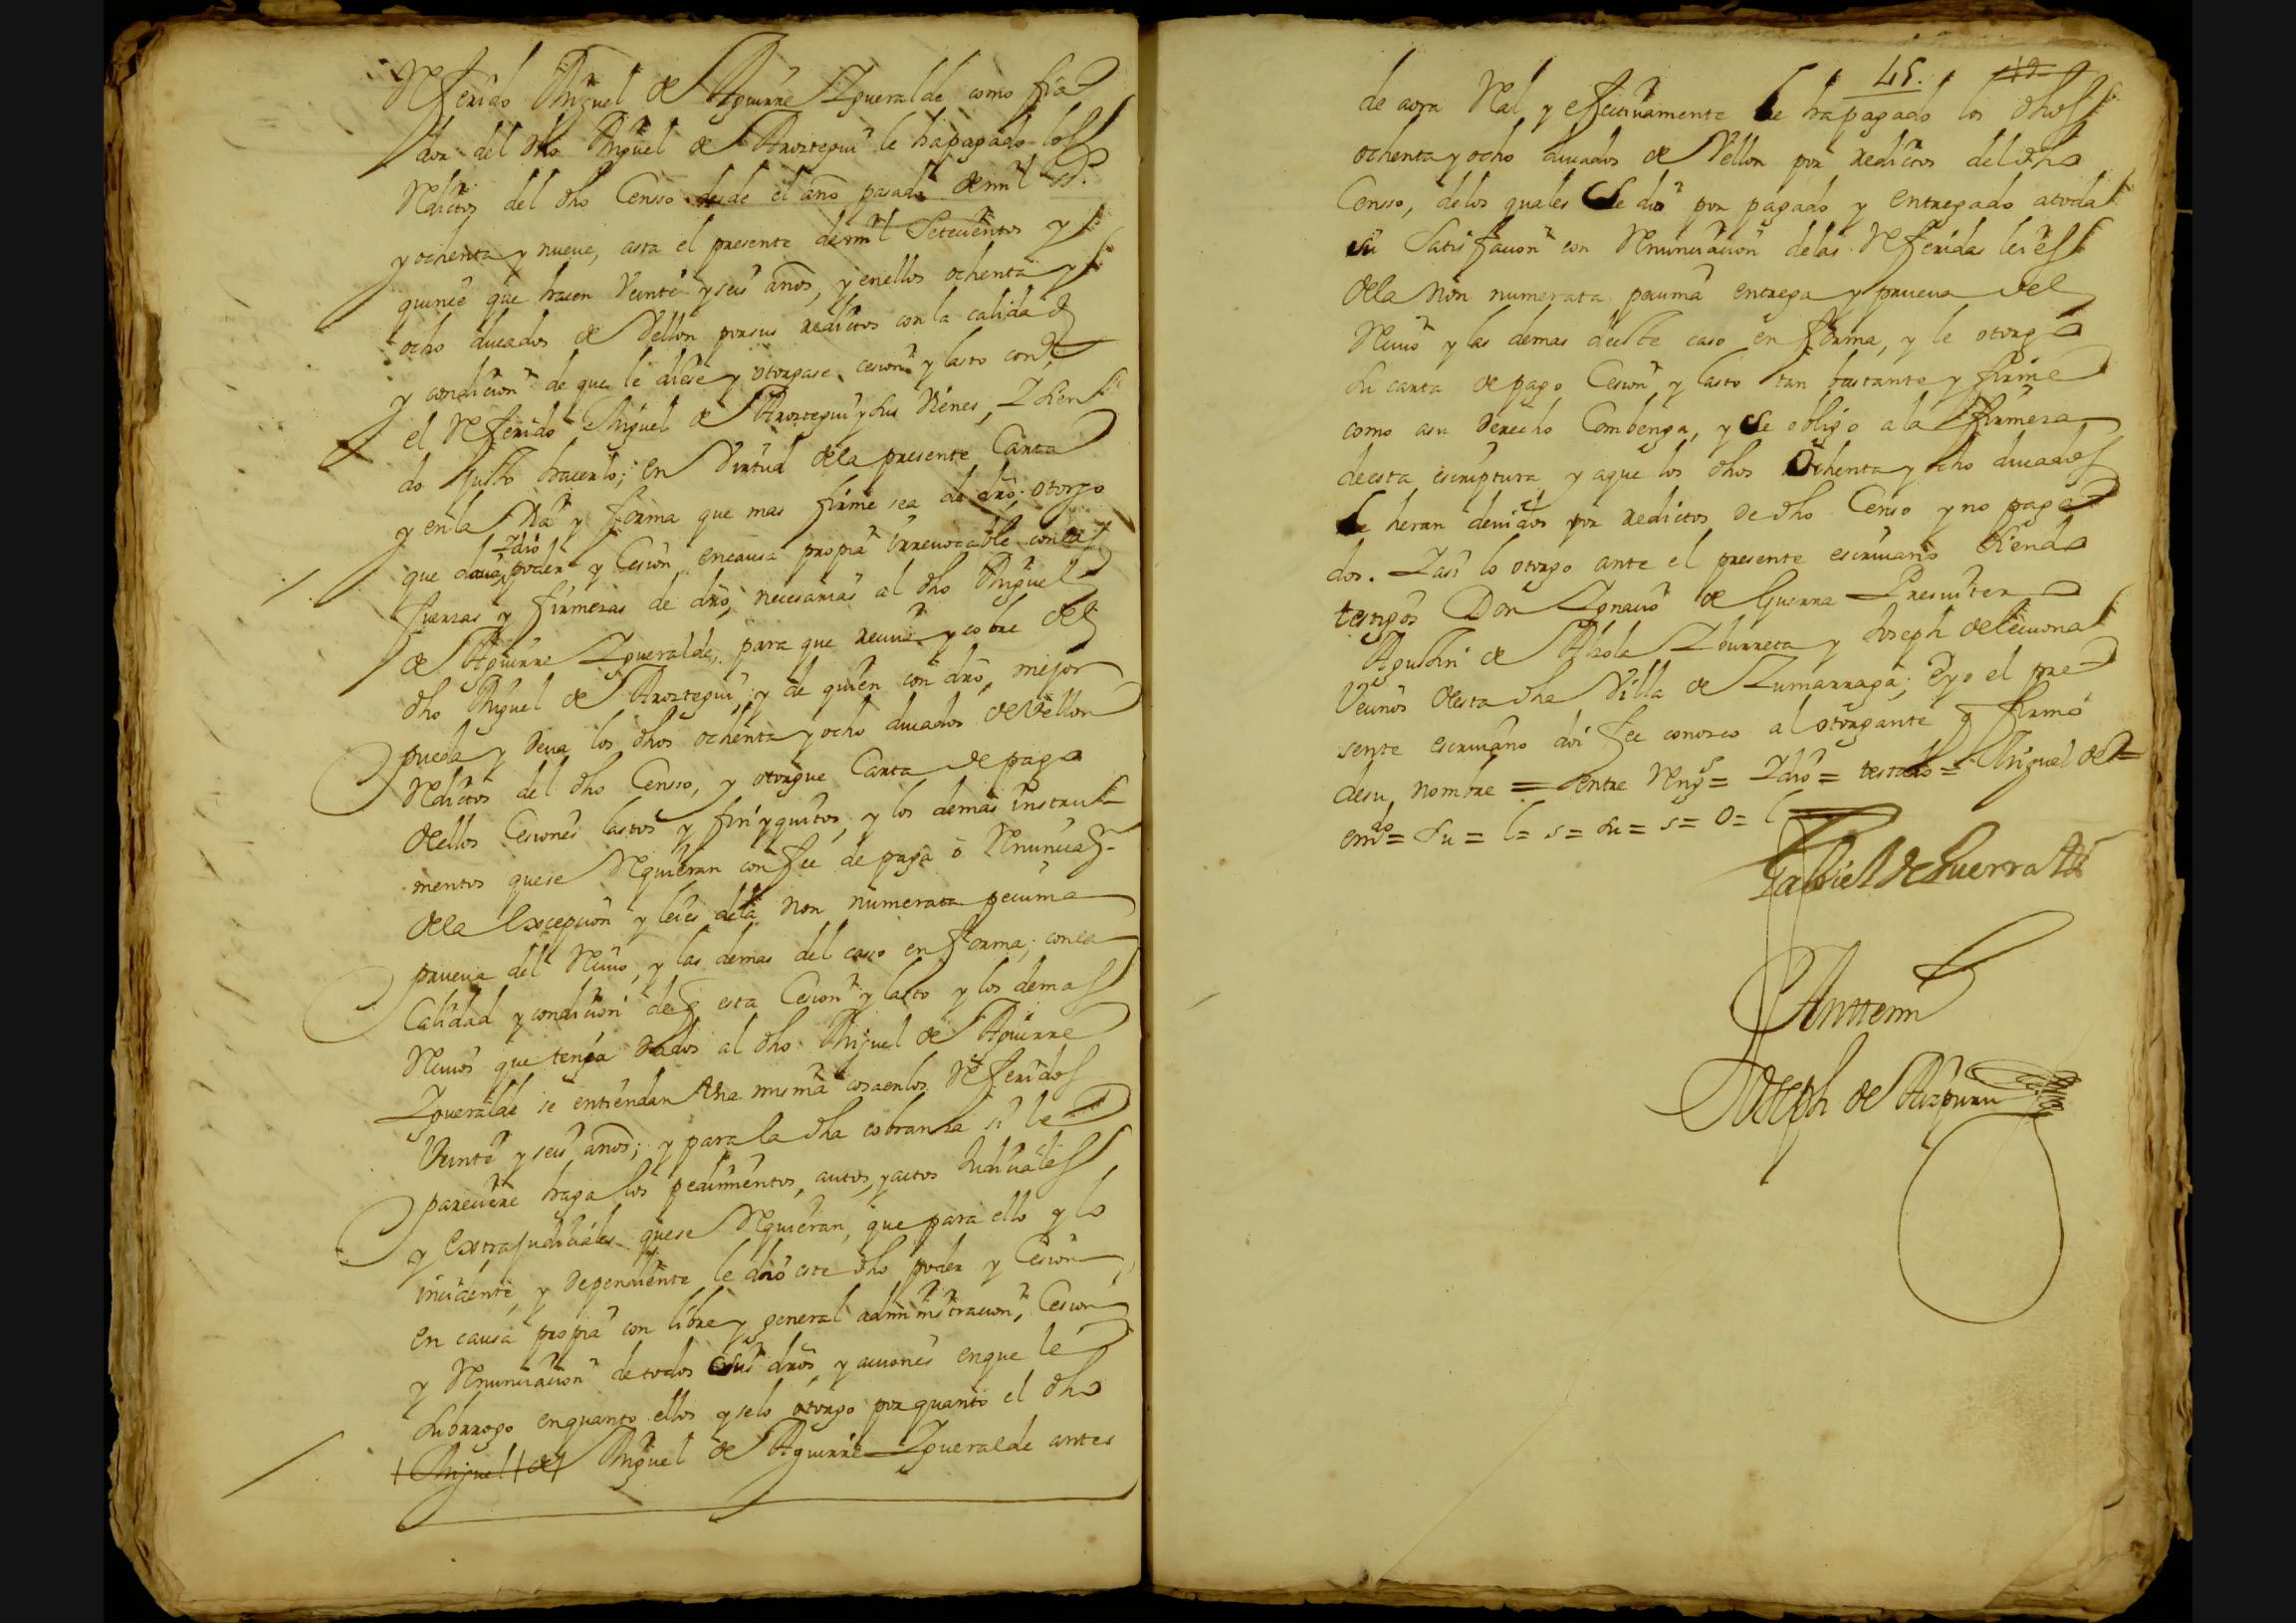 Referido Miguel de Aguirre Ygueralde como fia
dor del dho Miguel de Aroztegui le ha pagado los
Reditos del dho Censso desde el año pasado de mil Ss.
y ochenta y nueve, asta el presente de mil Setecientos y
quince que hacen Veinte y seis años, y en ellos ochenta y
ocho ducados de Vellon por sus reditos con la calidad
y condicion de que le diese y otorgase cesion y lasto contra
el Referido Miguel de Aroztegui y sus Vienes, Y sien
do justo hacerlo; en Virtud de la presente Carta
y en la Via y forma que mas firme sea de dro; otorgo
Y dio
que dava poder y Cesion en causa propia irrevocable con las
fuerzas y firmezas de dro, necesarias al dho Miguel
de Aguirre Ygueralde, para que reciva y cobre del
dho Miguel de Aroztegui, y de quien con dro, mejor
pueda y deva los dhos ochenta y ocho ducados de Vellon
Reditos del dho Censso, y otorgue Carta de pago
dellos Cesiones lastos y finiquitos, y los demas instru
mentos que se Requieran con fee de paga o Renunciaon
de la excepcion y leies de la non numerata pecunia
prueva del Recivo, y las demas del caso en forma; con la
Calidad y condicion de q esta Cesion y lasto y los demas
Recivos que tenga dados al dho Miguel de Aguirre
Ygueralde se entiendan Una misma cosa en los Referidos
Veinte y seis años; y para la dha cobranza si le
pareciere haga los pedimentos, autos, y actos Judiciales
y extrajudiciales que se Requieran, que para ello y lo
incidente y dependiente le dio este dho poder y Cesion
en causa propia con libre y general administracion, Cesion
y Renunciacion de todos sus dros, y acciones en que le
subrrogo en quanto ellos y se lo otorgo por quanto el dho
Miguel de Miguel de Aguirre Ygueralde antes
45.
de aora Real y efectivamente le ha pagado los dhos
ochenta y ocho ducados de Vellon por reditos del dho
Censso, de los quales Se dio por pagado y entregado a toda
su Satisfacion con Renunciacion de las Referidas leies
de la non numerata pecunia entrega y prueva del
Recivo y las demas deeste caso en forma, y le otorgo
su carta de pago Cesion y lasto tan bastante y firme
como a su derecho Combenga, y Se obligo a la firmeza
de esta escriptura y a que los dhos Ochenta y ocho ducados
le heran devidos por reditos de dho Censo y no paga
dos. Y asi lo otorgo ante el presente escrivano siendo
testigos Don Ygnacio de Guerra Presviter
Agustin de Alzola Yburreta y Joseph de Lecuona
Vecinos desta dha Villa de Zumarraga; E yo el pre
sente escrivano doi fee conozco al otorgante q firmo
de su nombre = entre Rengs = Y dio = testado = Miguel de =
emdo = su = l = s = su = s = O = l
Gabriel de Guerra
Anttemi
Joseph de Aizpuru